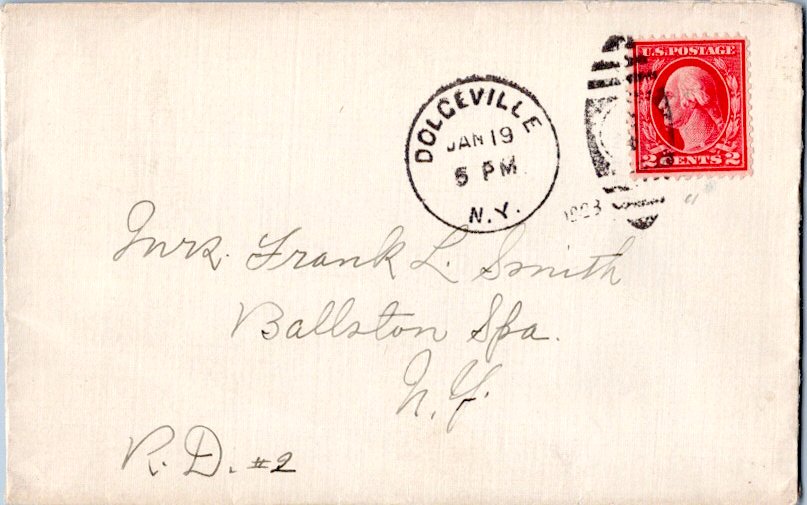 DOLGEVILLE
JAN 19
5 PM
N.Y.
U.S. POSTAGE
2 CENTS 2
Mrs. Frank L. Smith
Ballston Spa.
N.Y.
R.D. #2